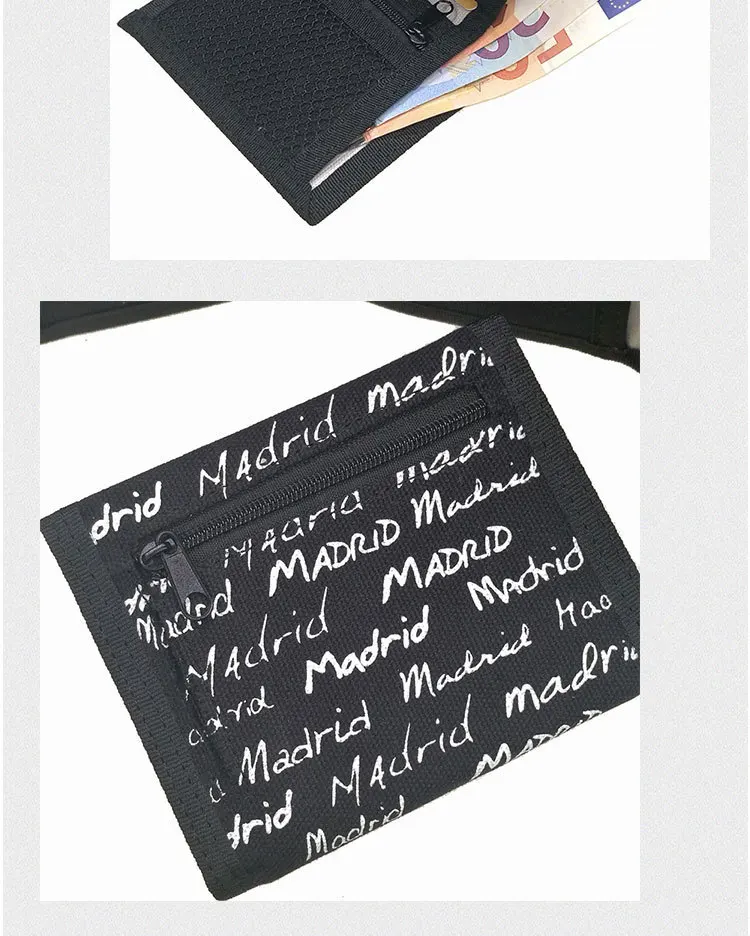 madri
drid Madrid
madri
Madrid
MADRID Madrid
Madrid MADRID Madrid
MAdrid Madrid Madrid Mad
adrid Madrid madri
Madrid MAdrid MADRID
drid Madrid